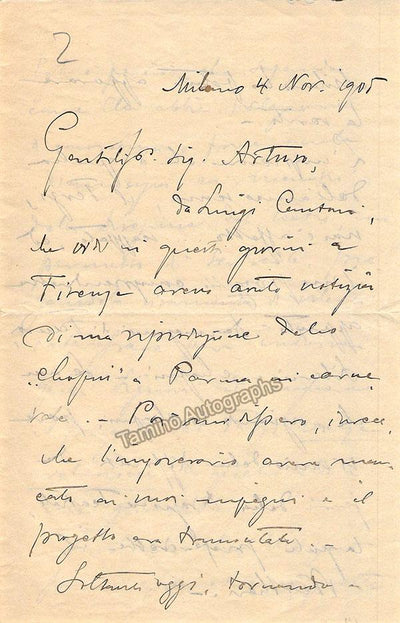 2
Milano 4 Nov. 1905
Gentilss. Sig. Arturo,
da Luigi
che vidi in questi giorni a
Firenze avevo avuto notizia
di una riproduzione dello
"Chopin" a Parma in carne
vale. - dissero, invece,
che l'impresario aveva man
cato ai suoi impegni e il
progetto era tramontato.
Soltanto oggi, tornando a
Tamino Autographs